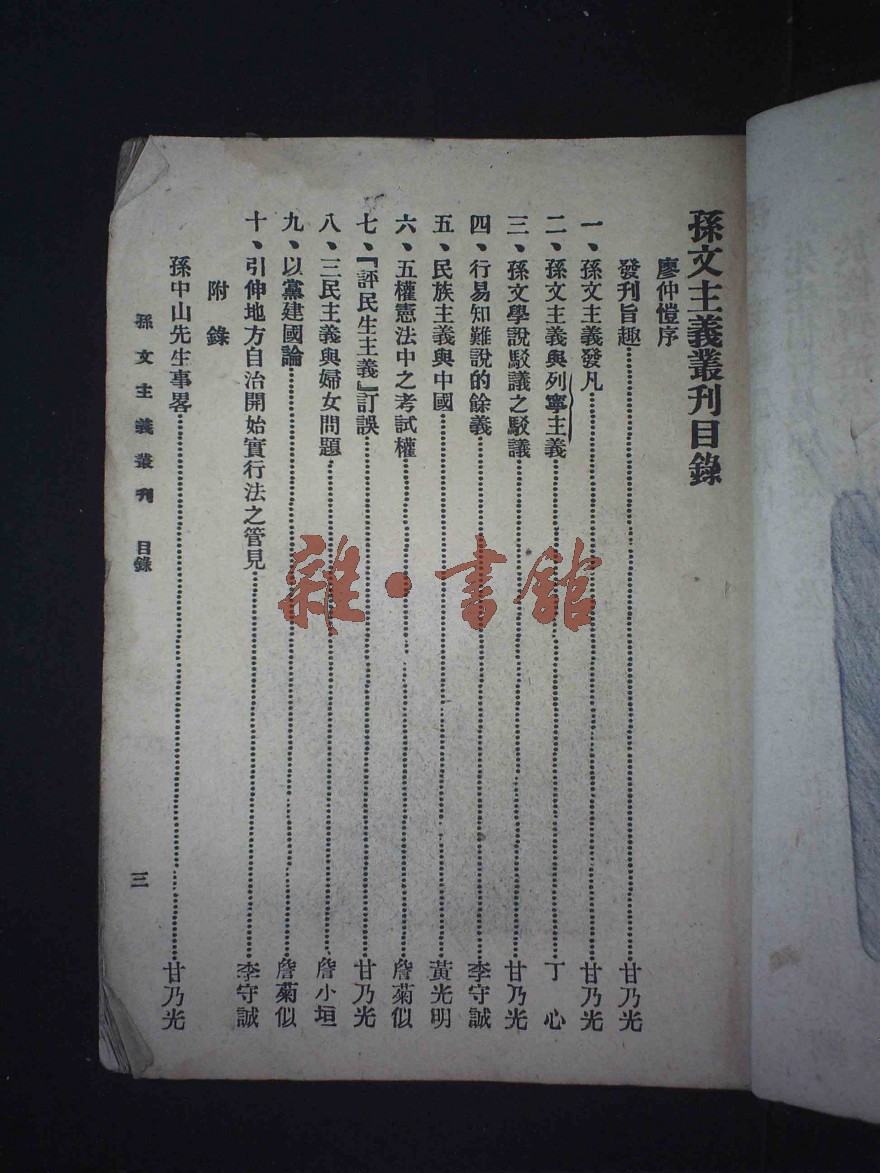 孫文主義叢刊目錄
廖仲愷序
發刊旨趣 甘乃光
一、孫文主義發凡 甘乃光
二、孫文主義與列寧主義 丁心
三、孫文學說駁議之駁議 甘乃光
四、行易知難說的餘義 李守誠
五、民族主義與中國 黃光明
六、五權憲法中之考試權 詹菊似
七、『評民生主義』訂誤 甘乃光
八、三民主義與婦女問題 詹小垣
九、以黨建國論 詹菊似
十、引伸地方自治開始實行法之管見 李守誠
附錄
孫中山先生事畧 甘乃光
孫文主義叢刊 目錄 三
雜·書館